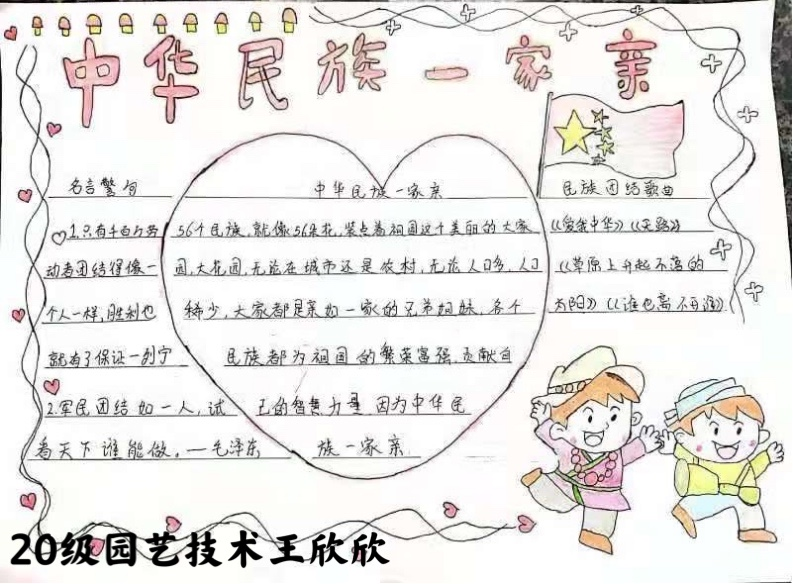 中华民族一家亲
名言警句
1.只有千百万劳
动者团结得像一
个人一样,胜利也
就有了保证一列宁
2.军民团结如一人,试
看天下谁能做。—毛泽东
中华民族一家亲
56个民族,就像56朵花,装点着祖国这个美丽的大家
园,大花园,无论在城市还是农村,无论人口多,人口
稀少,大家都是亲如一家的兄弟姐妹,各个
民族都为祖国的繁荣富强,贡献自
己的智慧力量 因为中华民
族一家亲
民族团结歌曲
《爱我中华》《天路》
《草原上升起不落的
太阳》《谁也离不开谁》
20级园艺技术王欣欣